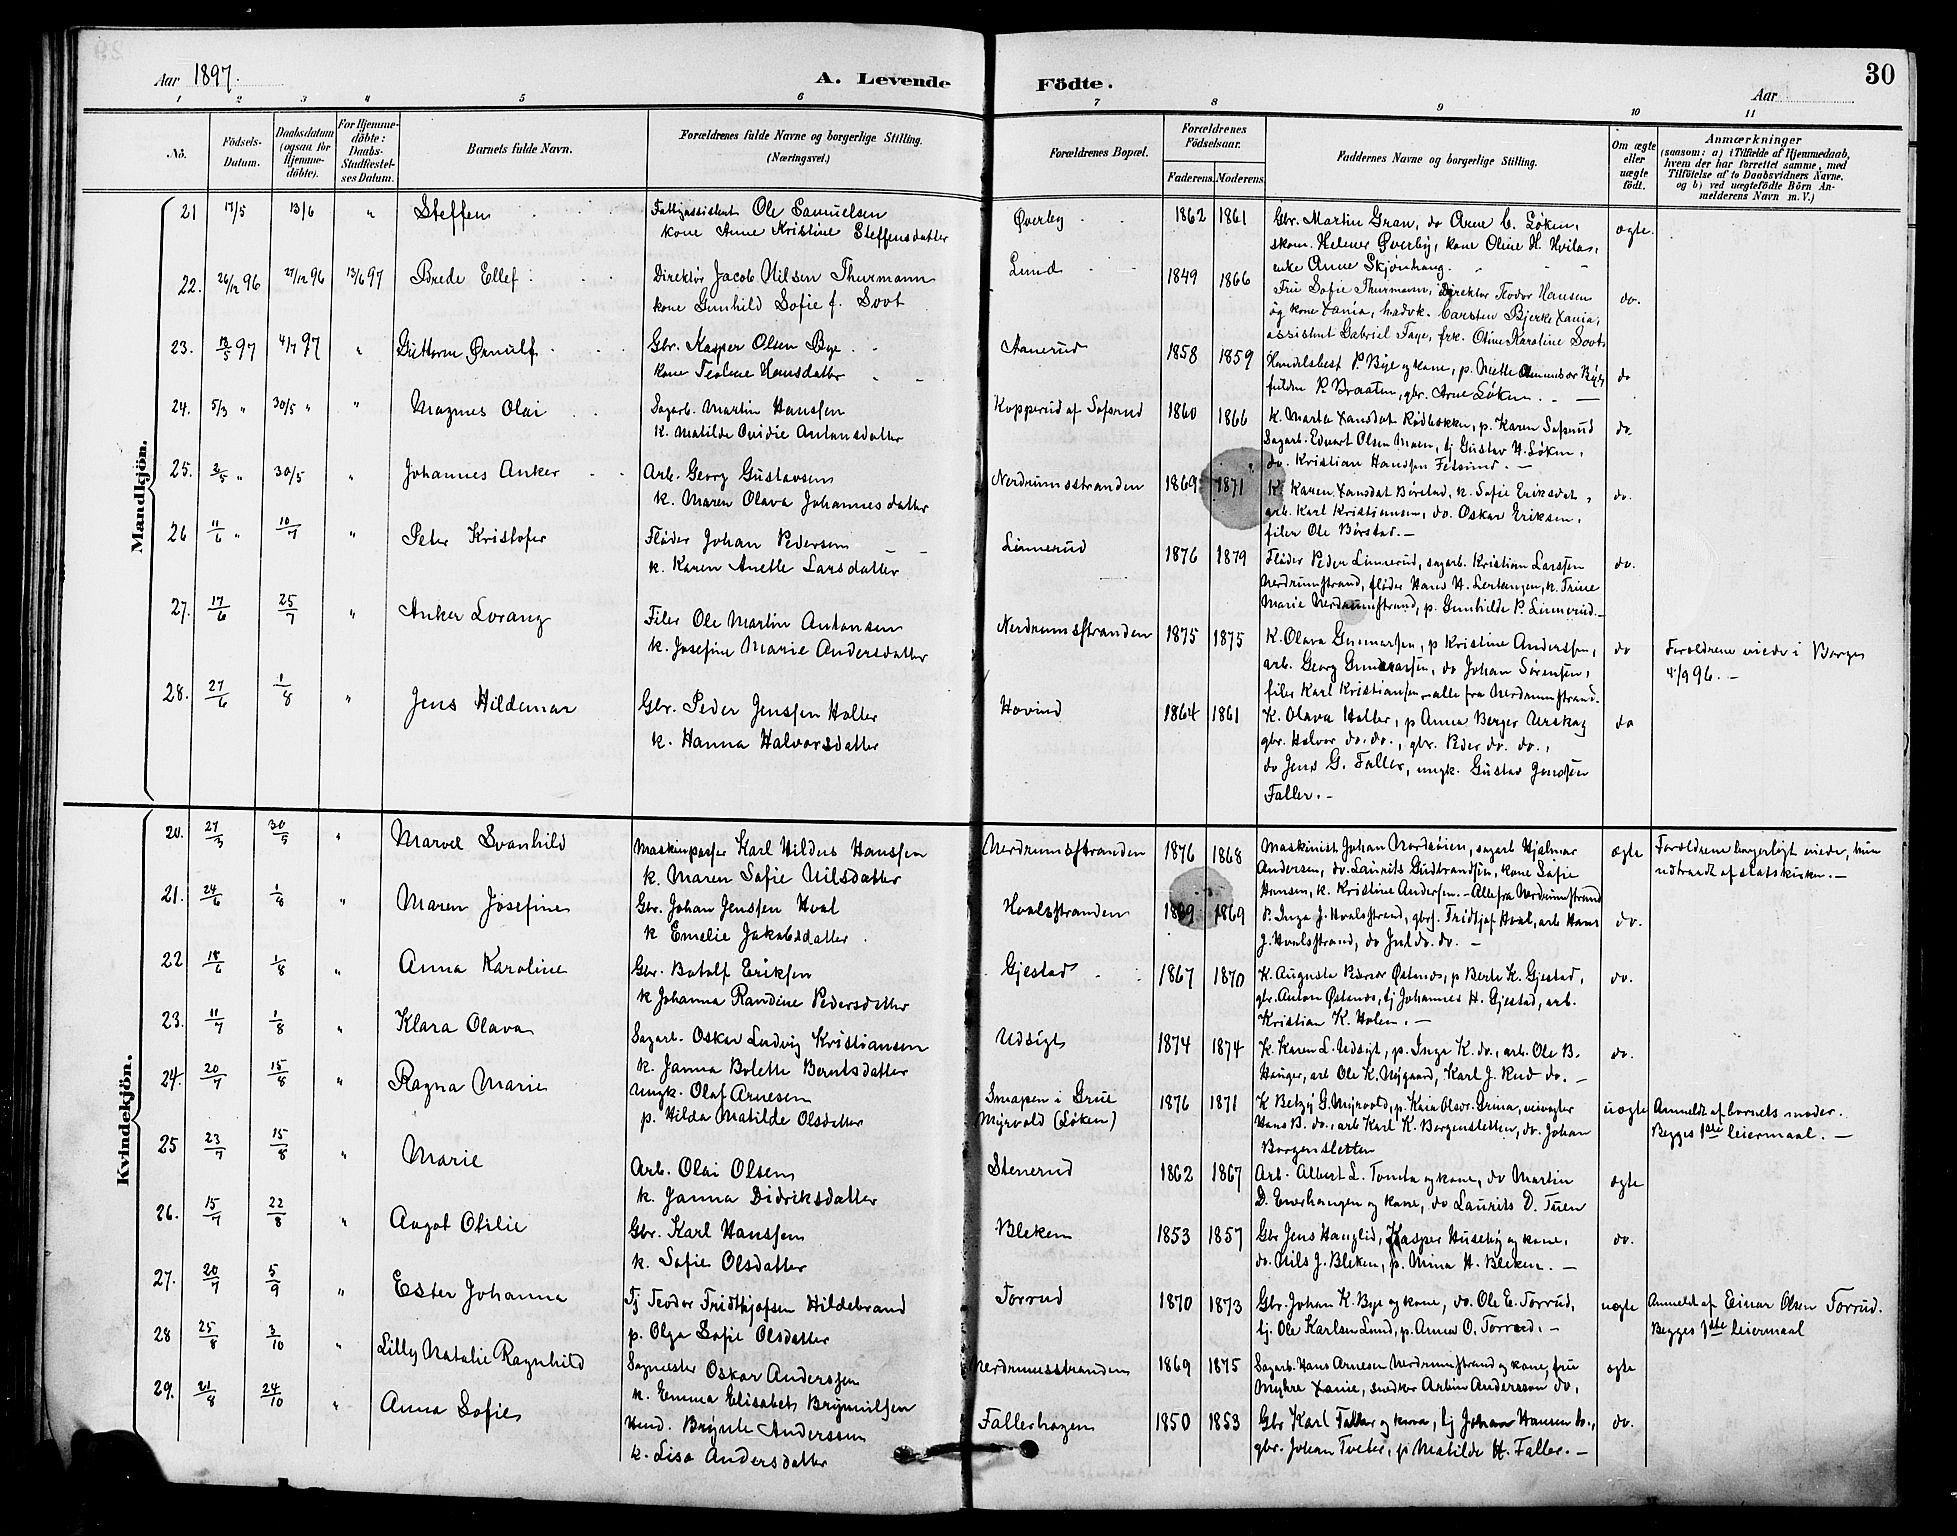 Aar 1897.
A. Levende Födte.
Aar
30
1 2 3 4 5 6 7 8 9 10 11
No. Födsels-Datum. Daabsdatum (ogsaa for Hjemme-döbte). For Hjemme-döbte: Daabs-Stadfæstel-ses Datum. Barnets fulde Navn. Forældrenes fulde Navne og borgerlige Stilling. (Næringsvei.) Forældrenes Bopæl. Forældrenes Födselsaar. Faderens. Moderens. Faddernes Navne og borgerlige Stilling. Om ægte eller uægte födt. Anmærkninger (saasom: a) i Tilfælde af Hjemmedaab, hvem der har forrettet samme, med Tilföielse af to Daabsvidners Navne. og b) ved uægtefödte Börn An-melderens Navn m. V.)
Mandkjön.
21 17/5 13/6 " Steffen Ole Samuelsen Øverby 1862 1861 Gbr. Martin Gran, do Arne C. Løken, ægte.
kone Anne Kristine Steffensdatter
skom. Helmer Øverby, kone Oline H. Hvilas,
enke Anne Skjønhaug.
22. 26/12 96 27/12 96 13/6 97 Brede Ellef Direktør Jacob Nilsen Thurmann Lund 1849 1866 Fru Sofie Thurmann, Direktør Teodor Hansen do.
kone Gunhild Sofie f. Soot
og kone Xania, Carsten Bjerke Xania,
assistent Gabriel Faye, frk. Oline Karoline Soot.
23. 13/5 97 4/7 97 " Guttorm Ørnulf Gbr. Kasper Olsen Bye Aanerud 1858 1859 Handelsbest P. Bye og kone, p. Mette do
kone Teoline Hansdatter
P. Braaten, gbr. Arne Løken.
24. 5/3 " 30/5 " " Magnus Olai Sagarb. Martin Hanssen Kopperud af Sofsrud 1860 1866 K. Marte do.
k. Matilde Ovidie Antonsdatter
Sagarb. Edvart Olsen Moen, tj Gustav H. Løken,
do. Kristian Hanssen Fetsund. -
25. 2/5 " 30/5 " Johannes Anker Arb. Georg Gustavsen Nordrumsstranden 1869 1871 K. Karen Børstad, k. Sofie Eriksdat, do.
k. Maren Olava Johannesdatter
arb. Karl Kristiansen, do. Oskar Eriksen,
filer Ole Børstad. -
26 11/6 " 10/7 " Peter Kristofer Fløder Johan Pedersen Linnerud 1876 1879 Fløder Peder Linnerud, sagarb. Kristian Larssen do.
k. Karen Anette Larsdatter
Nerdrumstrand, fløder Hans H. Lertangen, k. Trine
Marie Nerdrumstrand, p. Gunhilde P. Linnerud. -
27. 17/6 25/7 " Anker Lorang Filer Ole Martin Antonsen Nerdrumsstranden 1875 1875 K. Olava Gunnarsen, p Kristine Anderssen, do Forældrene viede i Borge
k. Josefine Marie Andersdatter
arb. Georg Gunnarssen, do Johan Sørensen, 4/9 96. -
filer Karl Kristiansen alle fra Nerdrumstrand.
28. 27/6 1/8 " Jens Hildemar Gbr. Peder Jenssen Halter Hovind 1864 1861 K. Olava Halter, p Anna Berger Urskog do
k. Hanna Halvorsdatter
gbr. Halvor do. do., gbr. Peder do. do.,
do Jens G. Faller, ungk. Gustav Jenssen
Faller. -
Kvindekjön.
20. 27/3 30/5 " Marvel Svanhild Maskinpasser Karl Hilder Hanssen Nerdrumsstranden 1876 1868 Maskinist Johan Nordsøien, sagarb Hjalmar ægte Forældrene borgerligt viede, hun
k. Maren Sofie Nilsdatter
Andersen, do. Laurits Gudbrandsen, kone Sofie udtraadt af statskirken. -
Hansen, k. Kristine Andersen. - Alle fra Nerdrumstrand
21. 24/6 1/8 " Maren Josefine Gbr. Johan Jenssen Hval Hvalsstranden 1869 P. Inga J. Hvalsstrand, gbrs. Fridtjof Hval, arb Hans do.
k Emelie Jakobsdatter
J. Hvalsstrand, do Jul do. do. -
22 18/6 1/8 " Anna Karoline Gbr. Botolf Eriksen Gjestad 1867 1870 K. Auguste Østenos, p Berte K. Gjestad, do.
k Johanna Randine Pedersdatter
gbr. Anton Østenos, tj Johannes H. Gjestad, arb.
Kristian K. Holen. -
23. 11/7 1/8 " Klara Olava Sagarb. Oskar Ludvig Kristiansen Udsigt 1874 1874 K. Karen L. Udsigt, p. Inga K. do., arb. Ole B. do.
k. Janna Bolette Berntsdatter
Hauger, arb Ole K. Nygaard, Karl J. Rud do. -
24. 20/7 15/8 " Ragna Marie Ungk. Olaf Arnesen Smapen i Grue 1876 1871 K Betzy G. Myrvold, p. Kaia Olsdr. Grina, uægte Anmeldt af barnets moder.
p. Hilda Matilde Olsdatter Myrvold (Løken)
Hans B. do., arb Karl K. Borgensletten, do. Johan Begges 1ste leiermaal. -
Borgensletten
25 23/7 15/8 " Marie Arb. Olai Olsen Stenerud 1862 1867 Arb. Albert L. Tomta og kone, do Martin ægte
k. Janna Didriksdatter
D. Enerhaugen og kone, do Laurits D. Tuen
26. 15/7 22/8 " Aagot Otilie Gbr. Karl Hanssen Bleken 1853 1857 Gbr Jens Hauglid, Kasper Huseby og kone, do.
k. Sofie Olsdatter
do. Nils J. Bleken, p. Mina H. Bleken. -
27. 20/7 5/9 " Ester Johanna Tj Teodor Fridthjofsen Hildebrand Torrud 1870 1873 Gbr. Johan K. Bye og kone, do. Ole E. Torrud, uægte Anmeldt af Einar Olsen Torrud.
p. Olga Sofie Olsdatter
tj. Ole Karlsen Lund, p. Anna O. Torrud. - Begges 1ste leiermaal
28 25/8 3/10 " Lilly Natalie Ragnhild Sagmester Oskar Anderssen Nerdrumsstranden 1869 1875 Sagarb. Hans Arnesen Nerdrumstrand og kone, fru ægte
k. Emma Elisabet Brynnilsen
Myhre Xania, snedker Anderssen do,
29. 21/8 24/10 " Anna Sofie Anderssen Fallerhagen 1850 1853 Gbr Karl Faller og kone, tj Johan Hansen do., do.
k. Lisa Andersdatter
gbr. Johan Tveter, p Matilde H. Faller. -